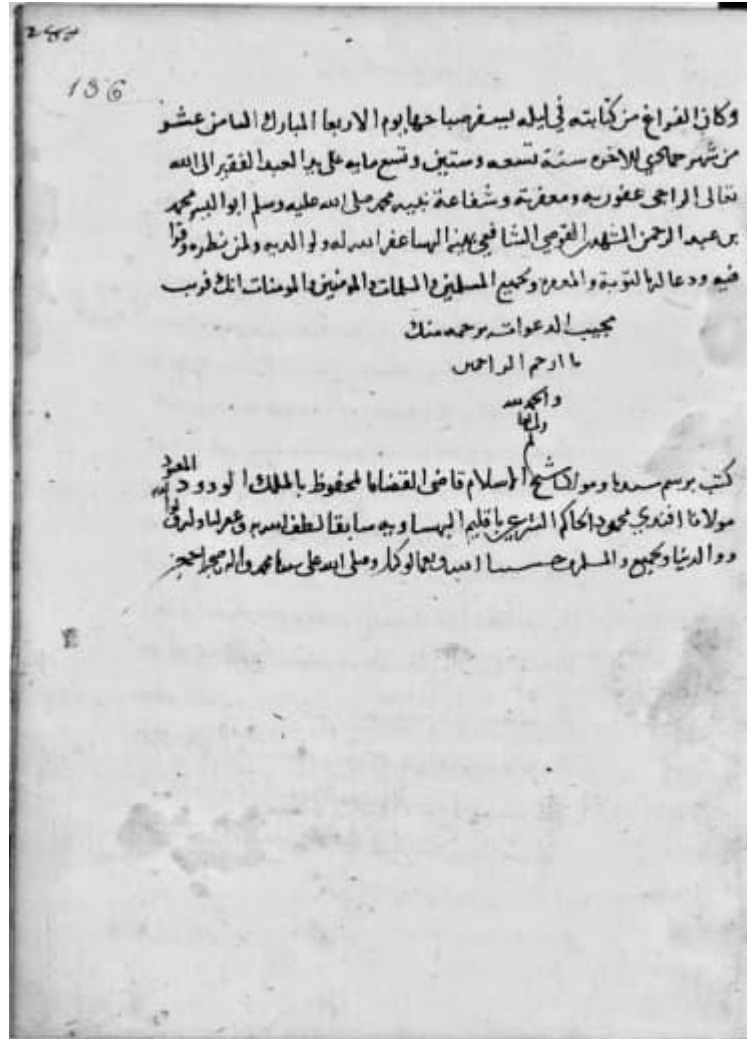 136
وكان الفراغ من كتابته في ليله يسفر صباحها يوم الاربعا المبارك الثامن عشر
من شهر جمادي الاخره سنة تسعه وستين وتسع مايه على يد العبد الفقير الى الله
تعالى الراجي عفو ربه ومغفرته وشفاعة نبيه محمد صلى الله عليه وسلم ابو اليسر محمد
بن عبد الرحمن الشافعي غفر الله له ولوالديه ولمن نظره وقرا
فيه ودعا لهم بالتوبة والمغفره ولجميع المسلمين والمسلمات والمومنين والمومنات انك قريب
مجيب الدعوات برحمه منك
يا ارحم الراحمين
والحمد لله
كتب برسم سيدنا ومولانا شيخ الاسلام قاضي القضاه المحفوظ بالملك الودود
مولانا افندي محمود الحاكم الشرعي باقليم البهنساويه سابقا لطف الله به وغفر له
ووالدينا ولجميع المسلمين حسبنا الله ونعم الوكيل وصلى الله على سيدنا محمد واله وصحبه اجمعين